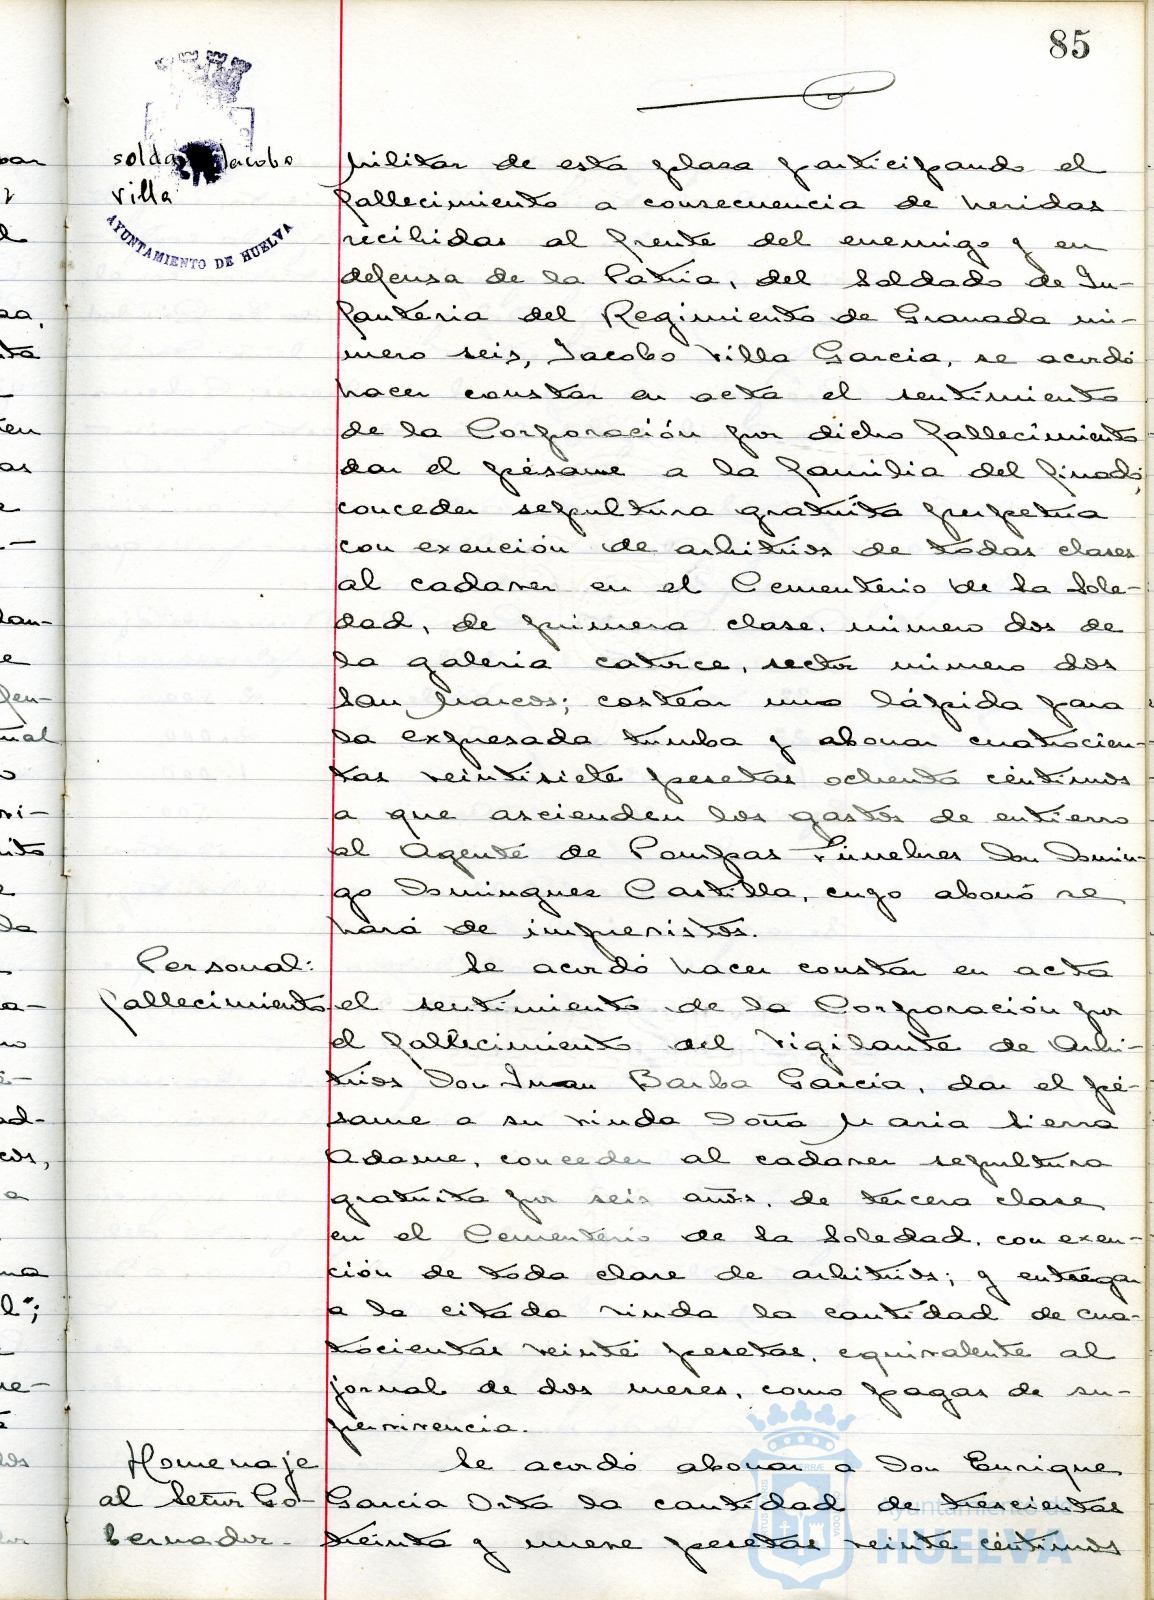 85
soldado Jacobo
villa
AYUNTAMIENTO DE HUELVA
militar de esta plaza participando el
fallecimiento a consecuencia de heridas
recibidas al frente del enemigo y en
defensa de la Patria, del Soldado de In-
fanteria del Regimiento de Granada nú-
mero seis, Jacobo Villa Garcia, se acordó
hacer constar en acta el sentimiento
de la Corporación por dicho fallecimiento
dar el pésame a la familia del finado;
conceder sepultura gratuita perpetua
con exención de arbitrios de todas clases
al cadaver en el Cementerio de la Sole-
dad, de primera clase, número dos de
la galeria catorce, sector número dos
San Marcos; costear una lápida para
la expresada tumba y abonar cuatrocien-
tas veintisiete pesetas ochenta céntimos
a que ascienden los gastos de entierro
al Agente de Pompas Fúnebres Don Domin-
go Dominguez Castilla, cuyo abono se
hará de imprevistos.
Personal:
fallecimiento
Se acordó hacer constar en acta
el sentimiento de la Corporación por
el fallecimiento del Vigilante de Arbi-
trios Don Juan Barba Garcia, dar el pé-
same a su viuda Doña Maria Sierra
Adame, conceder al cadaver sepultura
gratuita por seis años, de tercera clase
en el Cementerio de la Soledad, con exen-
ción de toda clase de arbitrios; y entregar
a la citada viuda la cantidad de cua-
trocientas veinte pesetas, equivalente al
jornal de dos meses, como pagas de su-
pervivencia.
Homenaje
al Señor Go-
bernador.
Se acordó abonar a Don Enrique
Garcia Orta la cantidad de trescientas
treinta y nueve pesetas veinte céntimos
Ayuntamiento de
HUELVA